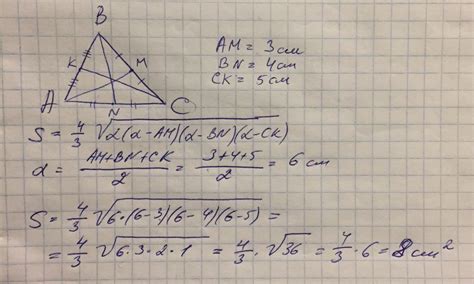 B
K
M
A
N
C
AM = 3 см
BN = 4 см
CK = 5 см
S = 4/3 √(α(α-AM)(α-BN)(α-CK))
α = (AM+BN+CK)/2 = (3+4+5)/2 = 6 см
S = 4/3 √(6·(6-3)(6-4)(6-5)) =
= 4/3 √(6·3·2·1) = 4/3 · √36 = 4/3 · 6 = 8 см²